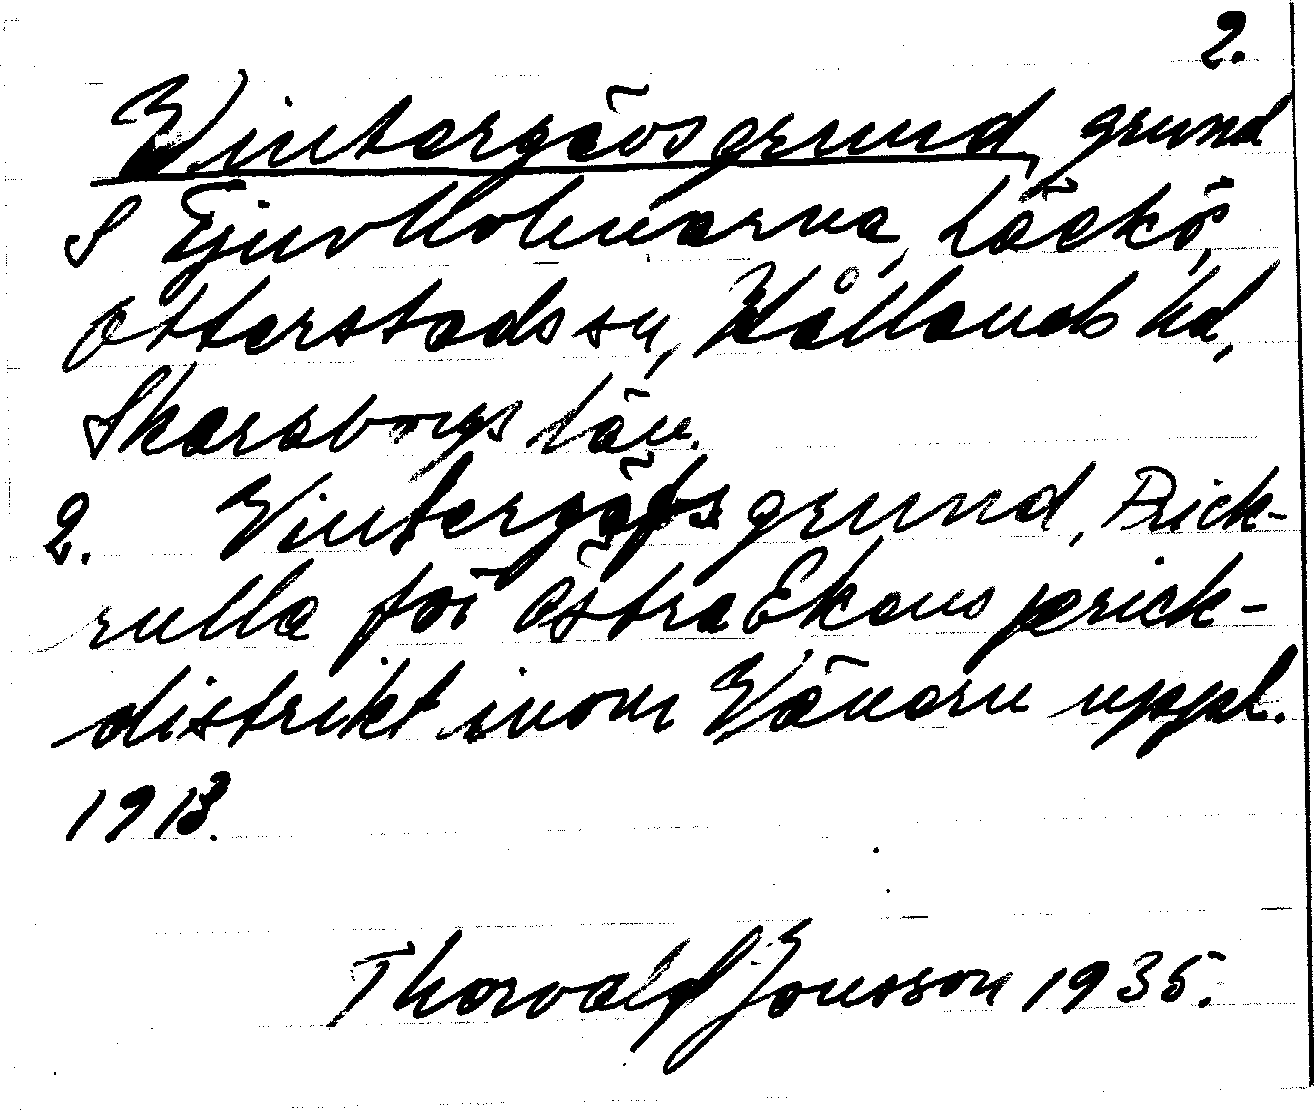 2.
Vintergävsgrund, grund
S Tjuvholmarna, Läckö,
Otterstads sn, Kållands hd,
Skaraborgs län.
2. Vintergäfs grund, Prick-
rulla för Östra Ekens prick-
distrikt inom Vänern uppl.
1913.
Thorvald Jonsson 1935.